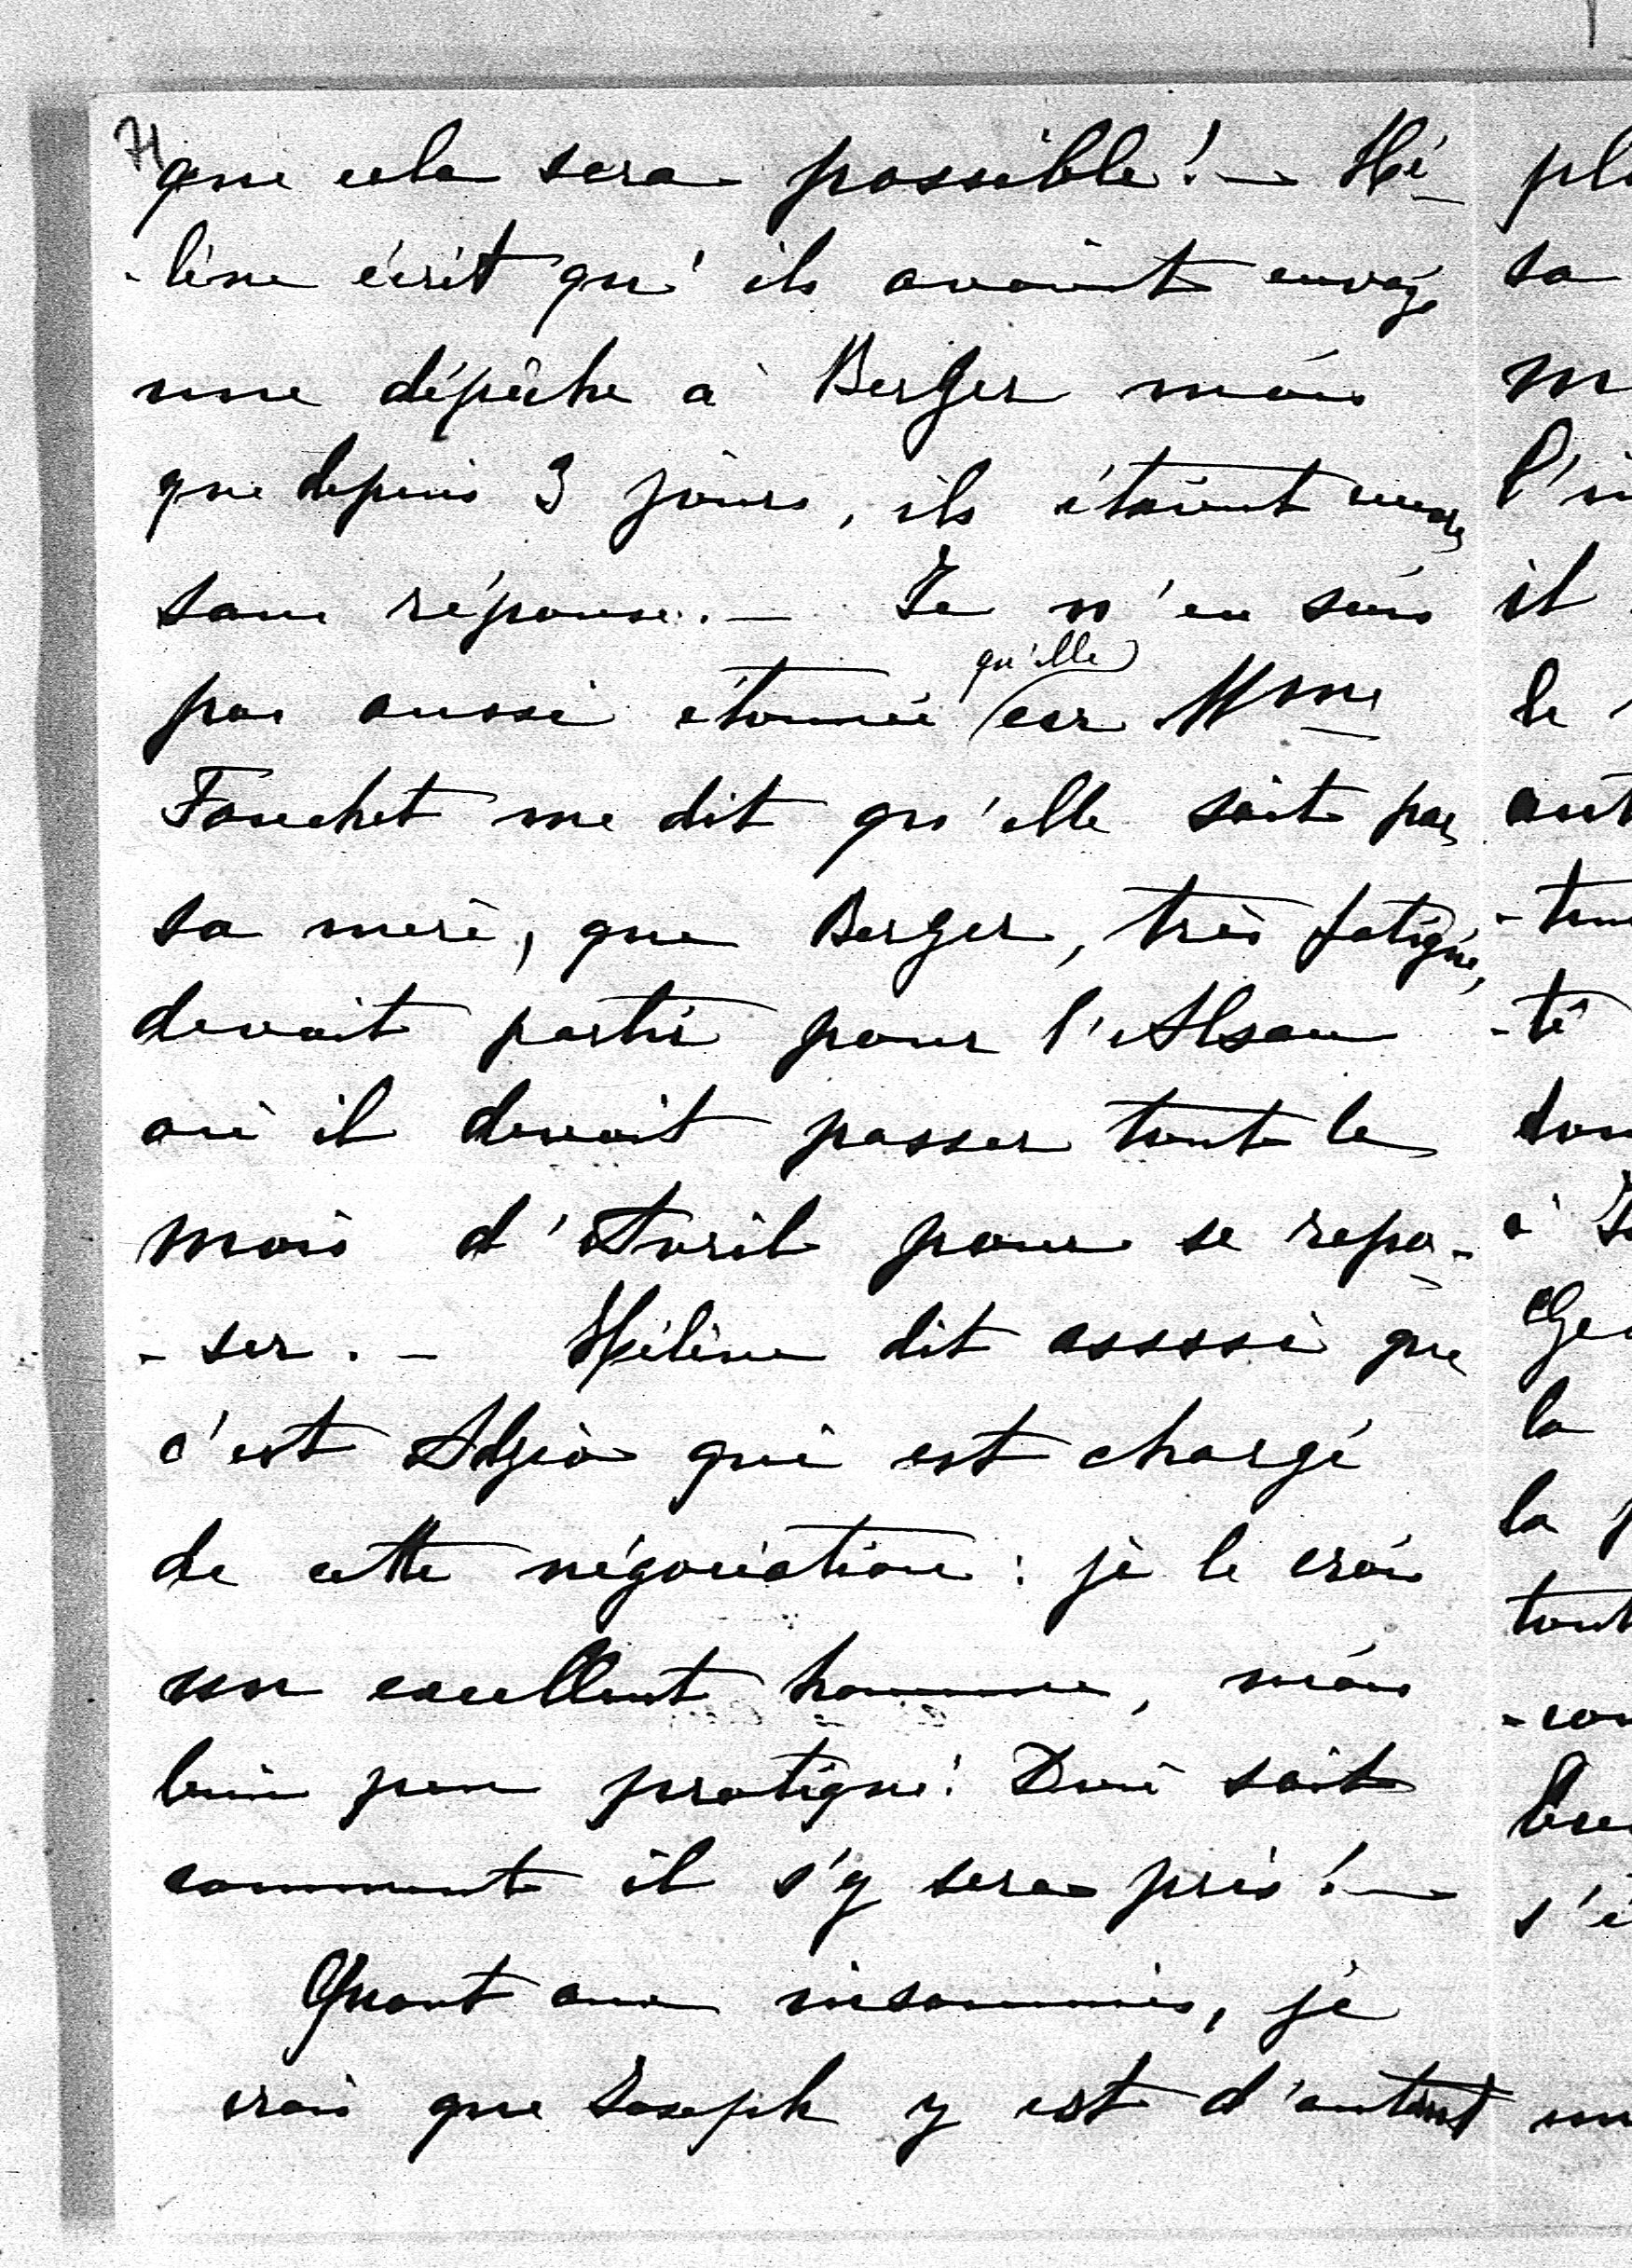 71
que cela sera possible! — Hé-
-lène écrit qu'ils avaient envoyé
une dépêche à Berger mais
que depuis 3 jours, ils étaient encore
sans réponse. — Je n'en suis
pas aussi étonnée qu'elle (car Mme
Fouchet me dit qu'elle sait par
sa mère, que Berger, très fatigué,
devait partir pour l'Alsace
où il devait passer tout le
mois d'Avril pour se repo-
-ser. — Hélène dit aussi que
c'est qui est chargé
de cette négociation : je le crois
un excellent homme, mais
bien peu pratique! Dieu sait
comment il s'y sera pris! —
Quant aux insomnies, je
crois que Joseph y est d'autant